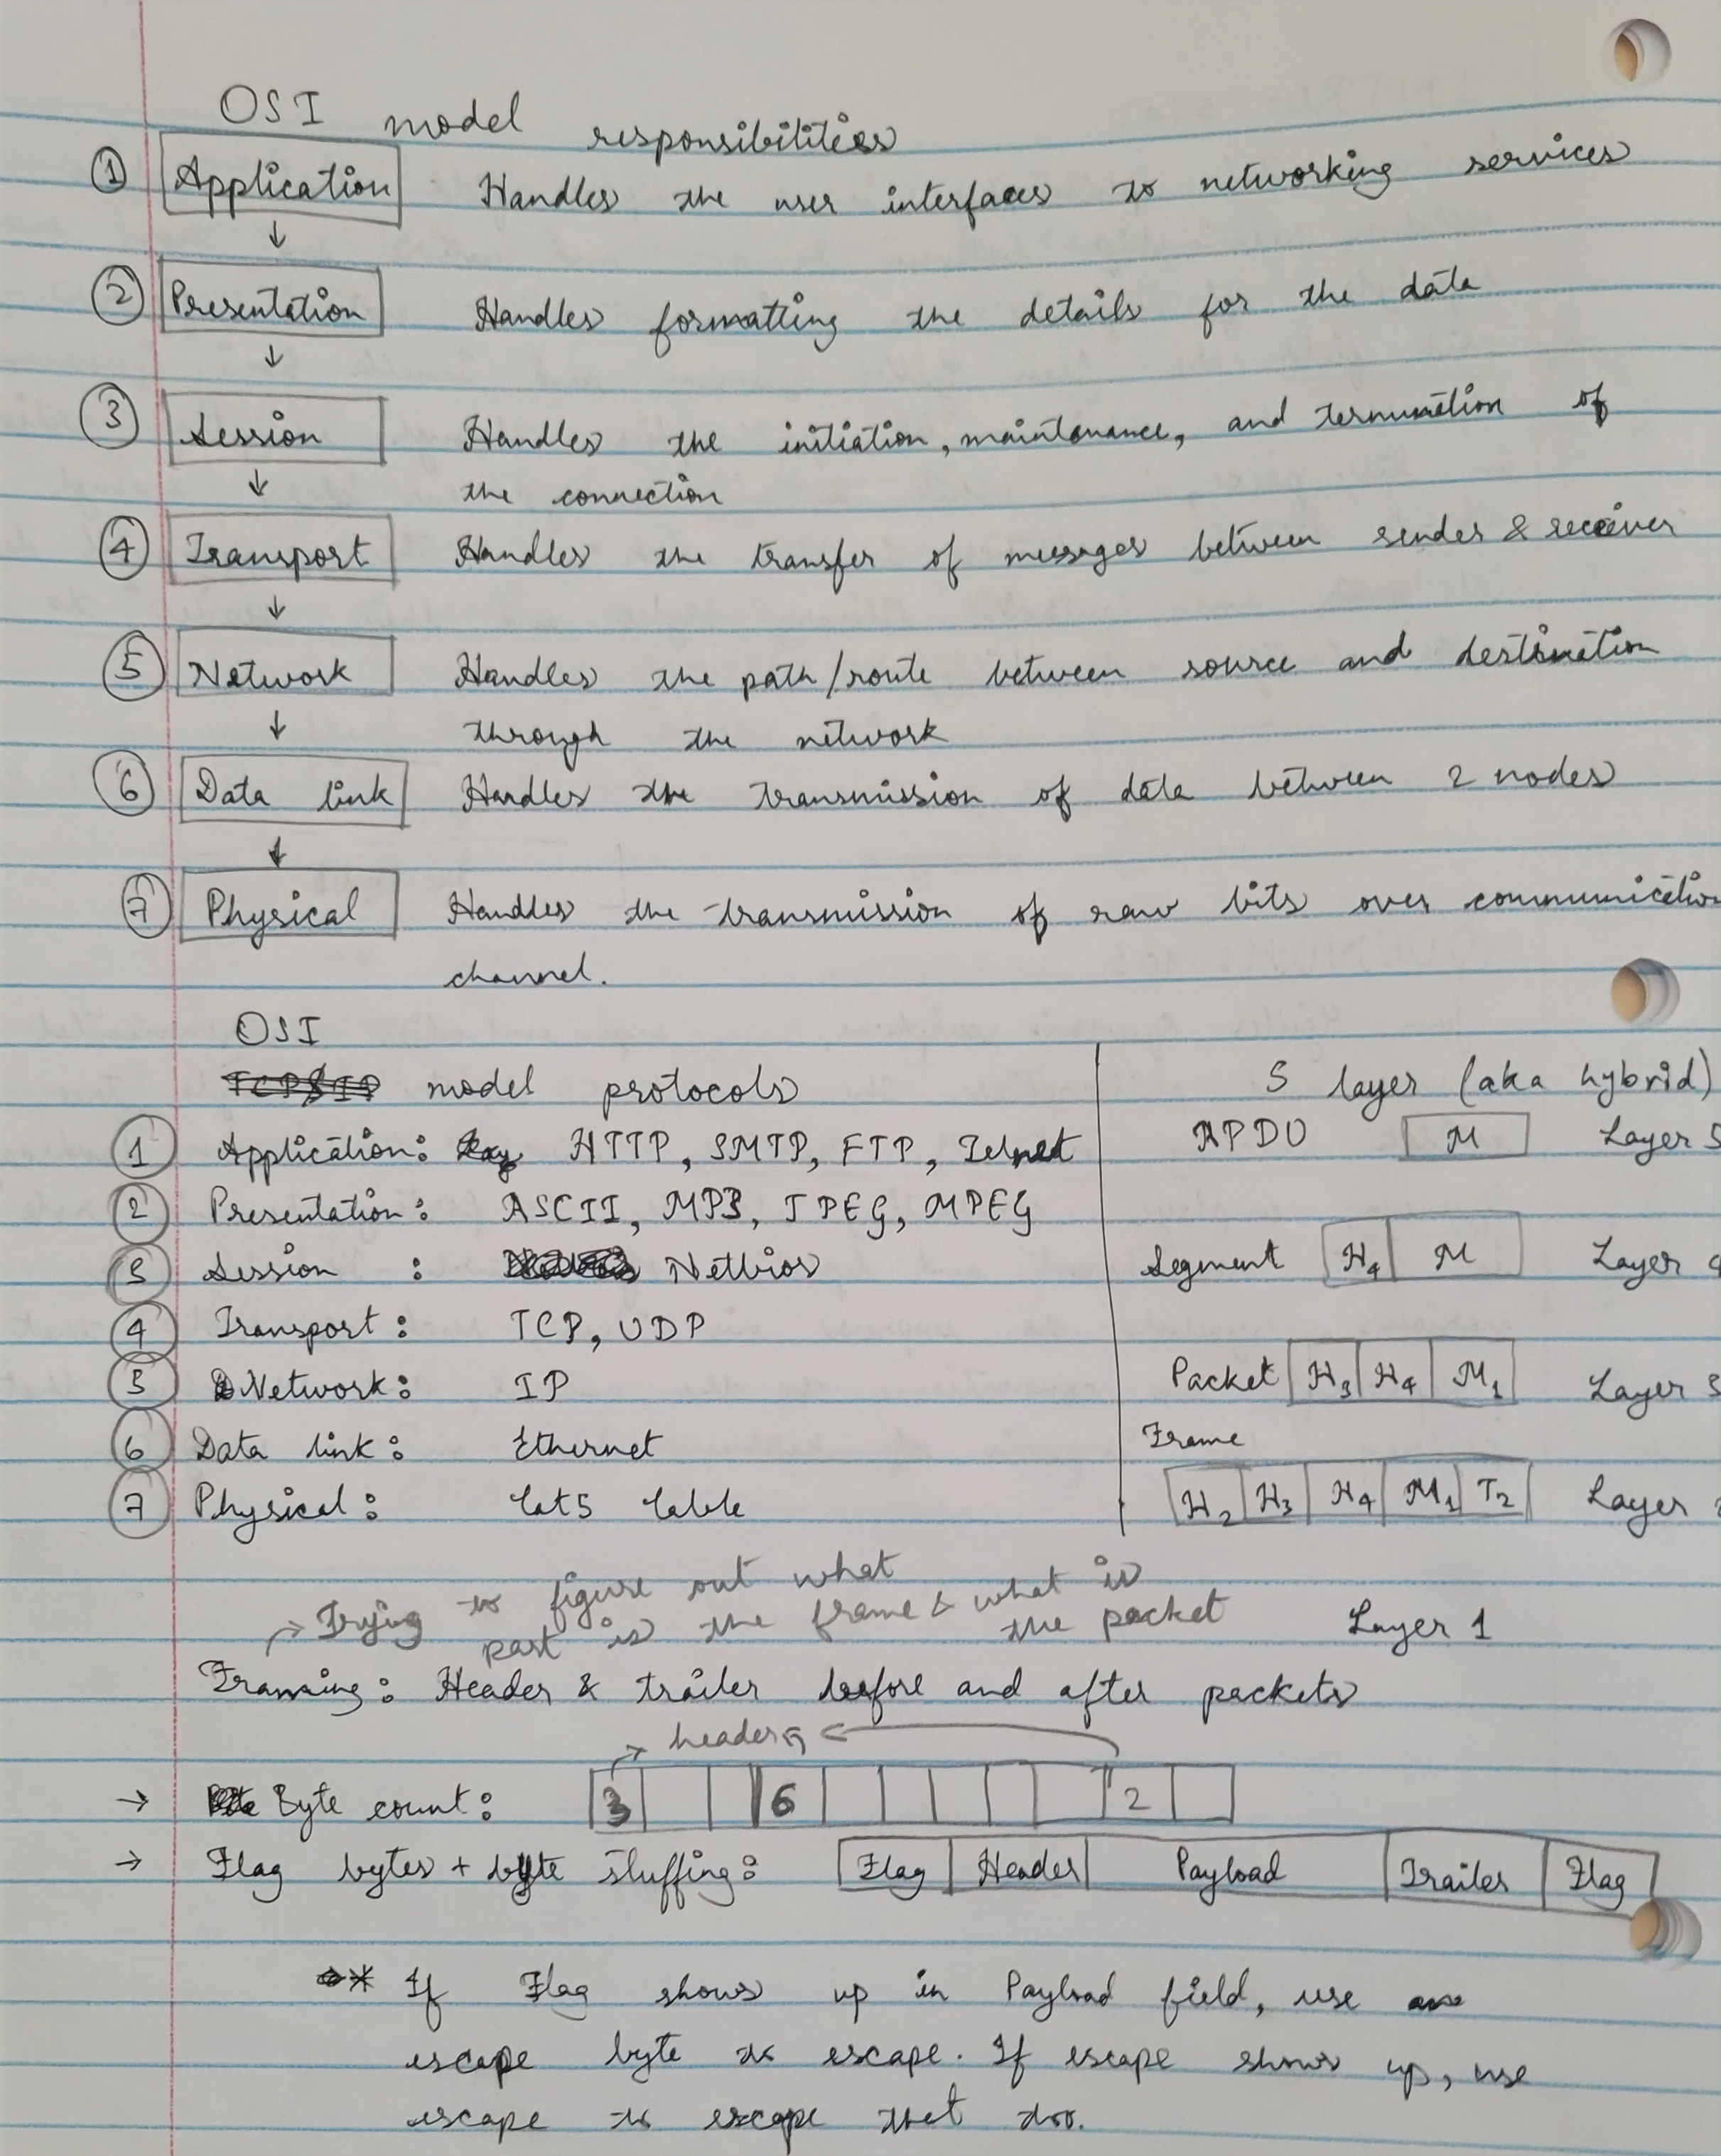 OSI model responsibilities
① Application Handles the user interfaces to networking services
↓
② Presentation Handles formatting the details for the data
↓
③ Session Handles the initiation, maintanance, and termination of
↓ the connection
④ Transport Handles the transfer of messages between sender & receiver
↓
⑤ Network Handles the path/route between source and destination
↓ through the network
⑥ Data link Handles the transmission of data between 2 nodes
↓
⑦ Physical Handles the transmission of raw bits over communication
channel.
OSI
TCP/IP model protocols
① Application: HTTP, SMTP, FTP, Telnet
② Presentation: ASCII, MP3, JPEG, MPEG
③ Session : Netbios
④ Transport: TCP, UDP
⑤ Network: IP
⑥ Data link: Ethernet
⑦ Physical: Cat5 Cable
5 layer (aka hybrid)
APDU M Layer 5
Segment H4 M Layer 4
Packet H3 H4 M1 Layer 3
Frame
H2 H3 H4 M1 T2 Layer
Layer 1
→ Trying to figure out what
part is the frame & what is
the packet
Framing: Header & trailer before and after packets
→ headers ←
→ Byte count: 3 6 2
→ Flag bytes + byte stuffing: Flag Header Payload Trailer Flag
** If Flag shows up in Payload field, use
escape byte to escape. If escape shows up, use
escape to escape that too.